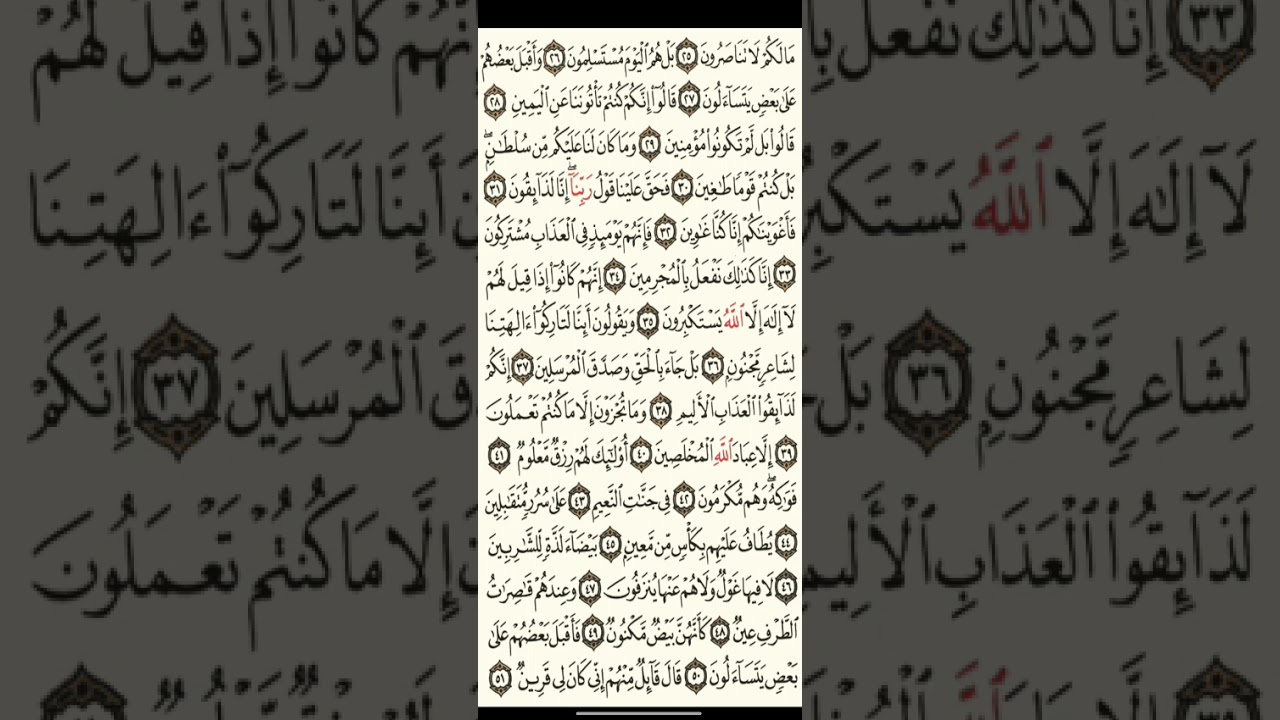 مَا لَكُمْ لَا تَنَاصَرُونَ ٢٥ بَلْ هُمُ ٱلْيَوْمَ مُسْتَسْلِمُونَ ٢٦ وَأَقْبَلَ بَعْضُهُمْ
عَلَىٰ بَعْضٍ يَتَسَآءَلُونَ ٢٧ قَالُوٓا۟ إِنَّكُمْ كُنتُمْ تَأْتُونَنَا عَنِ ٱلْيَمِينِ ٢٨
قَالُوا۟ بَل لَّمْ تَكُونُوا۟ مُؤْمِنِينَ ٢٩ وَمَا كَانَ لَنَا عَلَيْكُم مِّن سُلْطَـٰنٍۭ ۖ
بَلْ كُنتُمْ قَوْمًا طَـٰغِينَ ٣٠ فَحَقَّ عَلَيْنَا قَوْلُ رَبِّنَآ ۖ إِنَّا لَذَآئِقُونَ ٣١
فَأَغْوَيْنَـٰكُمْ إِنَّا كُنَّا غَـٰوِينَ ٣٢ فَإِنَّهُمْ يَوْمَئِذٍ فِى ٱلْعَذَابِ مُشْتَرِكُونَ
٣٣ إِنَّا كَذَٰلِكَ نَفْعَلُ بِٱلْمُجْرِمِينَ ٣٤ إِنَّهُمْ كَانُوٓا۟ إِذَا قِيلَ لَهُمْ
لَآ إِلَـٰهَ إِلَّا ٱللَّهُ يَسْتَكْبِرُونَ ٣٥ وَيَقُولُونَ أَئِنَّا لَتَارِكُوٓا۟ ءَالِهَتِنَا
لِشَاعِرٍ مَّجْنُونٍۭ ٣٦ بَلْ جَآءَ بِٱلْحَقِّ وَصَدَّقَ ٱلْمُرْسَلِينَ ٣٧ إِنَّكُمْ
لَذَآئِقُوا۟ ٱلْعَذَابِ ٱلْأَلِيمِ ٣٨ وَمَا تُجْزَوْنَ إِلَّا مَا كُنتُمْ تَعْمَلُونَ
٣٩ إِلَّا عِبَادَ ٱللَّهِ ٱلْمُخْلَصِينَ ٤٠ أُو۟لَـٰٓئِكَ لَهُمْ رِزْقٌ مَّعْلُومٌ ٤١
فَوَٰكِهُ ۖ وَهُم مُّكْرَمُونَ ٤٢ فِى جَنَّـٰتِ ٱلنَّعِيمِ ٤٣ عَلَىٰ سُرُرٍ مُّتَقَـٰبِلِينَ
٤٤ يُطَافُ عَلَيْهِم بِكَأْسٍ مِّن مَّعِينٍۭ ٤٥ بَيْضَآءَ لَذَّةٍ لِّلشَّـٰرِبِينَ
٤٦ لَا فِيهَا غَوْلٌ وَلَا هُمْ عَنْهَا يُنزَفُونَ ٤٧ وَعِندَهُمْ قَـٰصِرَٰتُ
ٱلطَّرْفِ عِينٌ ٤٨ كَأَنَّهُنَّ بَيْضٌ مَّكْنُونٌ ٤٩ فَأَقْبَلَ بَعْضُهُمْ عَلَىٰ
بَعْضٍ يَتَسَآءَلُونَ ٥٠ قَالَ قَآئِلٌ مِّنْهُمْ إِنِّى كَانَ لِى قَرِينٌ ٥١